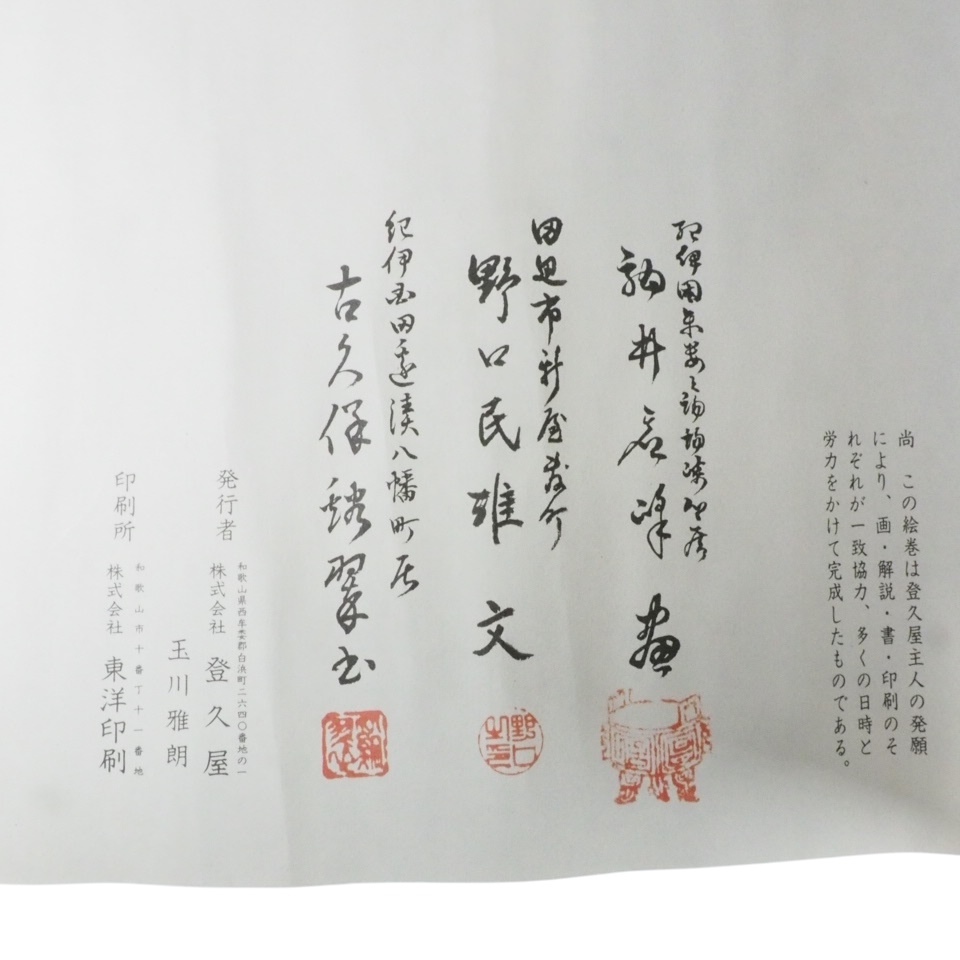 尚 この絵巻は登久屋主人の発願
により、画・解説・書・印刷のそ
れぞれが一致協力、多くの日時と
労力をかけて完成したものである。
紀伊国牟婁之
井 峰 画
田辺市新屋敷町
野口民雄 文
野口之印
紀伊国田辺湊八幡町居
古久保 翠書
発行者
和歌山県西牟婁郡白浜町二六四〇番地の一
株式会社 登久屋
玉川雅朗
印刷所
和歌山市十番丁十一番地
株式会社 東洋印刷